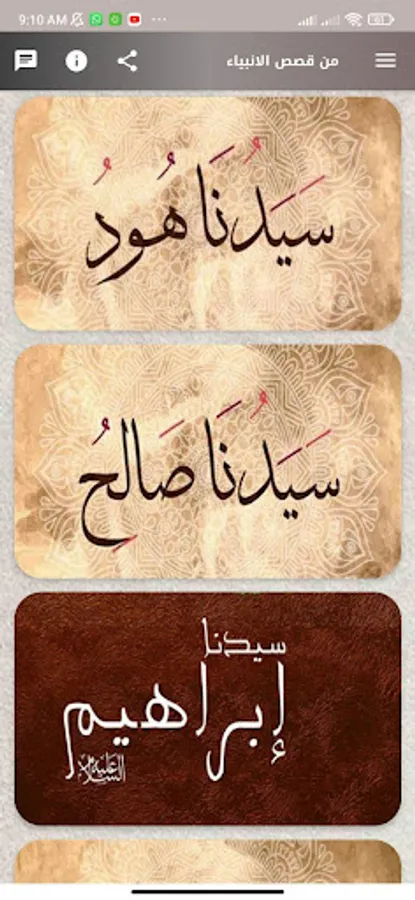 9:10 AM
61
من قصص الانبياء
سَيَدُنَا هُودُ
سَيَدُنَا صَالِحُ
سيدنا
إبراهيم
عليه السلام